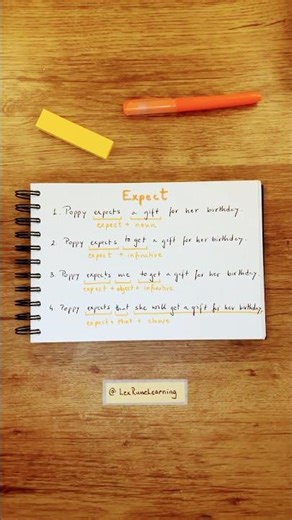 Expect
1. Poppy expects a gift for her birthday.
expect + noun
2. Poppy expects to get a gift for her birthday.
expect + infinitive
3. Poppy expects me to get a gift for her birthday.
expect + object + infinitive
4. Poppy expects that she will get a gift for her birthday.
expect + that + clause
@LexRuneLearning